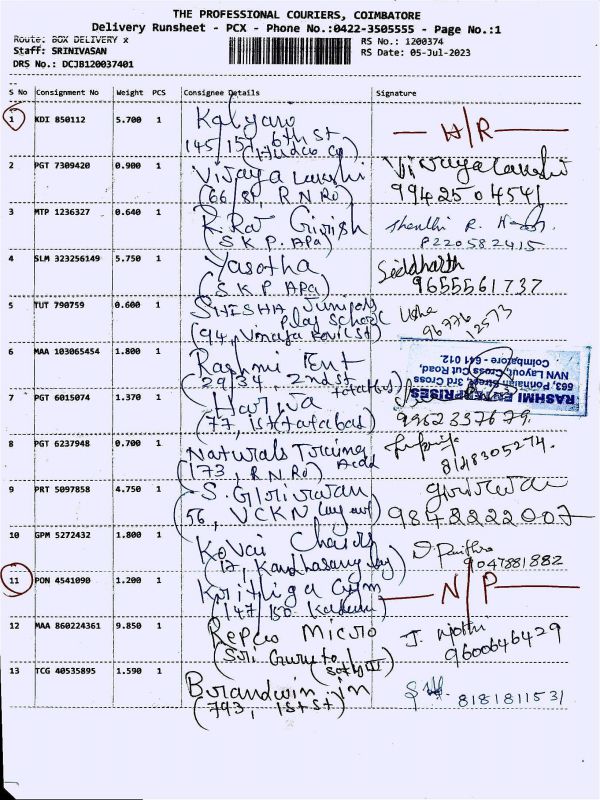 THE PROFESSIONAL COURIERS, COIMBATORE
Delivery Runsheet - PCX - Phone No.:0422-3505555 - Page No.:1
Route: BOX DELIVERY x
Staff: SRINIVASAN
DRS No.: DCJB120037401
RS No.: 1200374
RS Date: 05-Jul-2023
S No Consignment No Weight PCS Consignee Details Signature
1 KDI 850112 5.700 1 Kalyani H/R
145/151, 6th St
2 PGT 7309420 0.900 1 Vijaya Lakshi Vijayalakshi
(66/8F, R.N.Ro) 9942504541
3 MTP 1236327 0.640 1 R. Raj Girish Shanthi R.
(S K P. APa) 8220582415
4 SLM 323256149 5.750 1 Yasotha Siddharth
(S K P APa) 9655561737
5 TUT 790759 0.600 1 SHISHA Juniors Usha
Play School 96776 12573
(94, Vinayaka Kovil St)
6 MAA 103065454 1.800 1 Rashmi Ent
(29/34, 2nd St tatabad)
RASHMI ENTERPRISES
663, Ponnaian Street, 3rd Cross
NVN Layout, Cross Cut Road,
Coimbatore - 641 012.
7 PGT 6015074 1.370 1
(77, 1st (tatabad) 9962337679.
8 PGT 6237948 0.700 1 Naturals Training Acad
(173, R.N.Ro) 8148305274.
9 PRT 5097858 4.750 1 S. Girirajan
(56, VCKN Layout) 9842222007
10 GPM 5272432 1.800 1 Kovai Chairs D. Pavithra
(12, Kandhasamy lay) 9047881882
11 PON 4541090 1.200 1 Krithiga Gym N/P
(147, 150
12 MAA 860224361 9.850 1 Repco Micro J.
(Siri Guru to 9600646429
13 TCG 40535895 1.590 1 Brandwin in
(793, 1st St) 8181811531